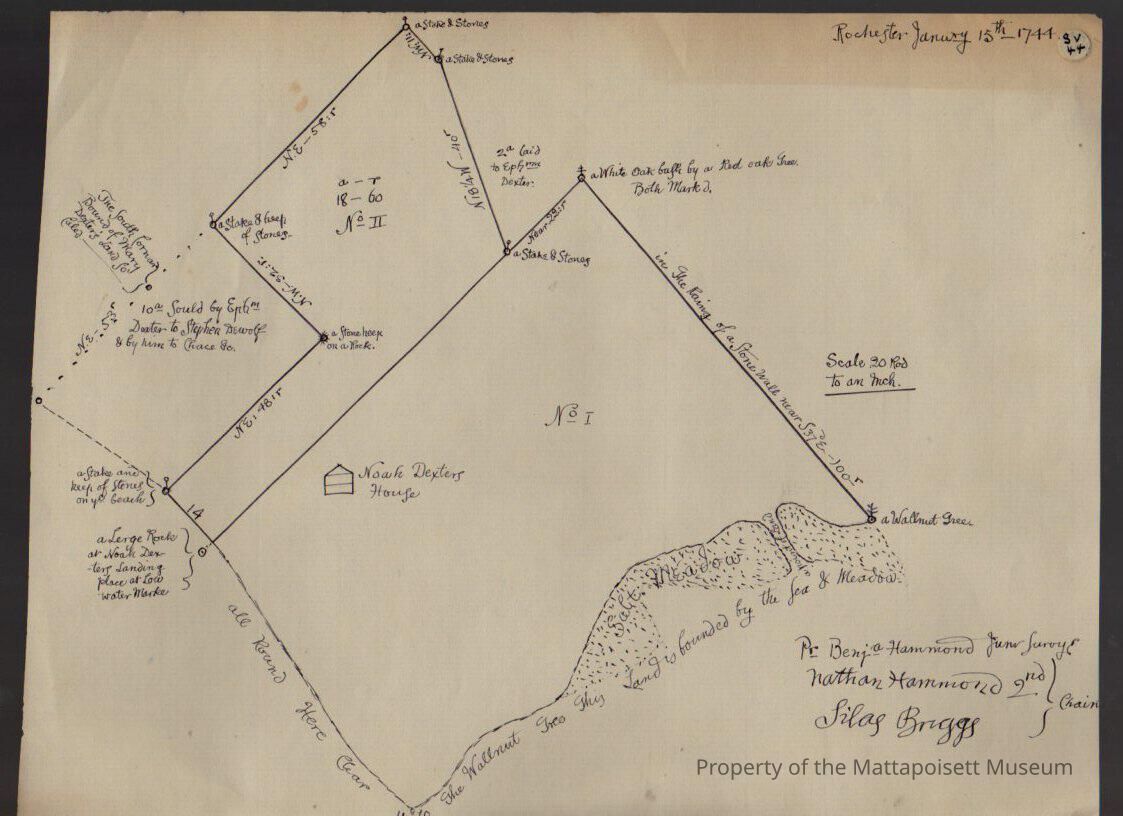 Rochester January 15th 1744.
SV
44
a Stake & Stones
a Stake & Stones
N.E-58:r
N18¼W-40r
2a laid
to Ephrm
Dexter.
a White Oak bush by a Red oak Tree.
Both Mark'd.
a-r
18-60
No II
a Stake & heep
of Stones.
Near 23:r
a Stake & Stones
The South Cornar
Bound of Mary
Dexters Land So
Caled
N.W-32:r.
in The Raing of a Stone Wall near S37E-100r
10a Sould by Ephm
Dexter to Stephen Dewolf
& by him to Chace &c.
N.E-58r
a Stone heep
on a Rock.
Scale 20 Rod
to an Inch.
NE:48:r
No I
Noah Dexters
House
a Stake and
heep of Stones
on ye beach
14
a Wallnut Tree.
a Lerge Rock
at Noah Dex-
-ters Landing
place at Low
water Marke
Salt Meadow
all Round Here Clear
The Wallnut Tree This Land is bounded by the Sea & Meadow.
Pr Benja Hammond Junr Survyr
Nathan Hammond 2nd
Silas Briggs
Chain
Property of the Mattapoisett Museum